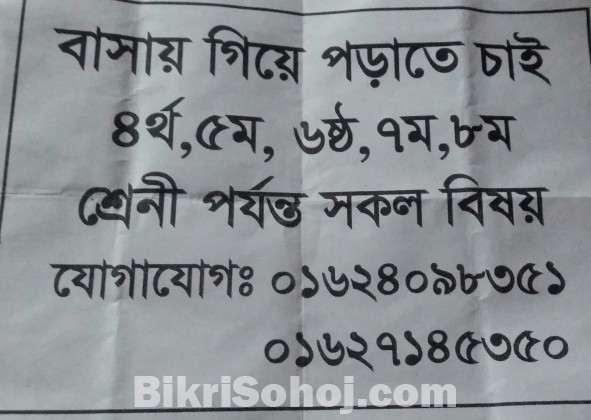 বাসায় গিয়ে পড়াতে চাই
৪র্থ,৫ম, ৬ষ্ঠ,৭ম,৮ম
শ্রেনী পর্যন্ত সকল বিষয়
যোগাযোগঃ ০১৬২৪০৯৮৩৫১
০১৬২৭১৪৫৩৫০
BikriSohoj.com